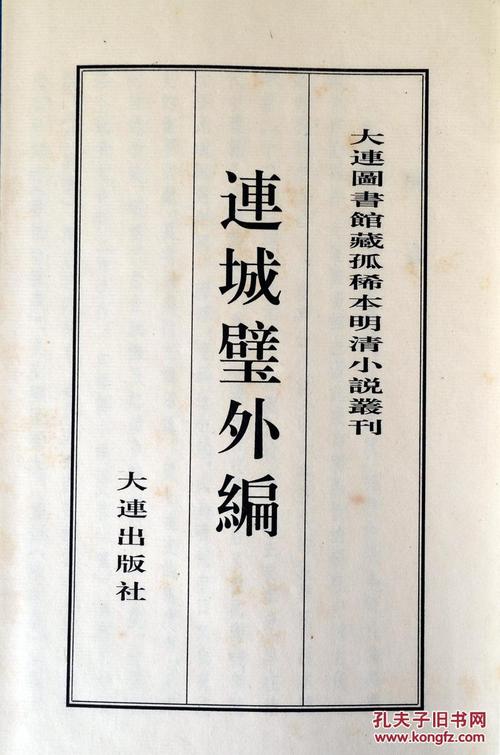 大連圖書館藏孤稀本明清小説叢刊
連城璧外編
大連出版社
孔夫子旧书网
www.kongfz.com